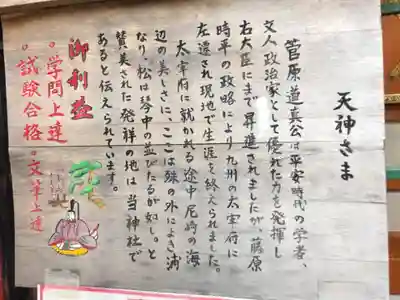 天神さま
菅原道真公は平安時代の学者、
文人政治家として優れた力を発揮し
右大臣にまで昇進されましたが、藤原
時平の政略により九州の太宰府に
左遷され現地で生涯を終えられました。
太宰府に就かれる途中尼崎の海
辺の美しさに、ここは殊の外によき浦
なり、松は琴中の並びたるが如し。と
賛美された発祥の地は当神社で
あると伝えられています。
御利益
・学問上達
・試験合格・文筆上達